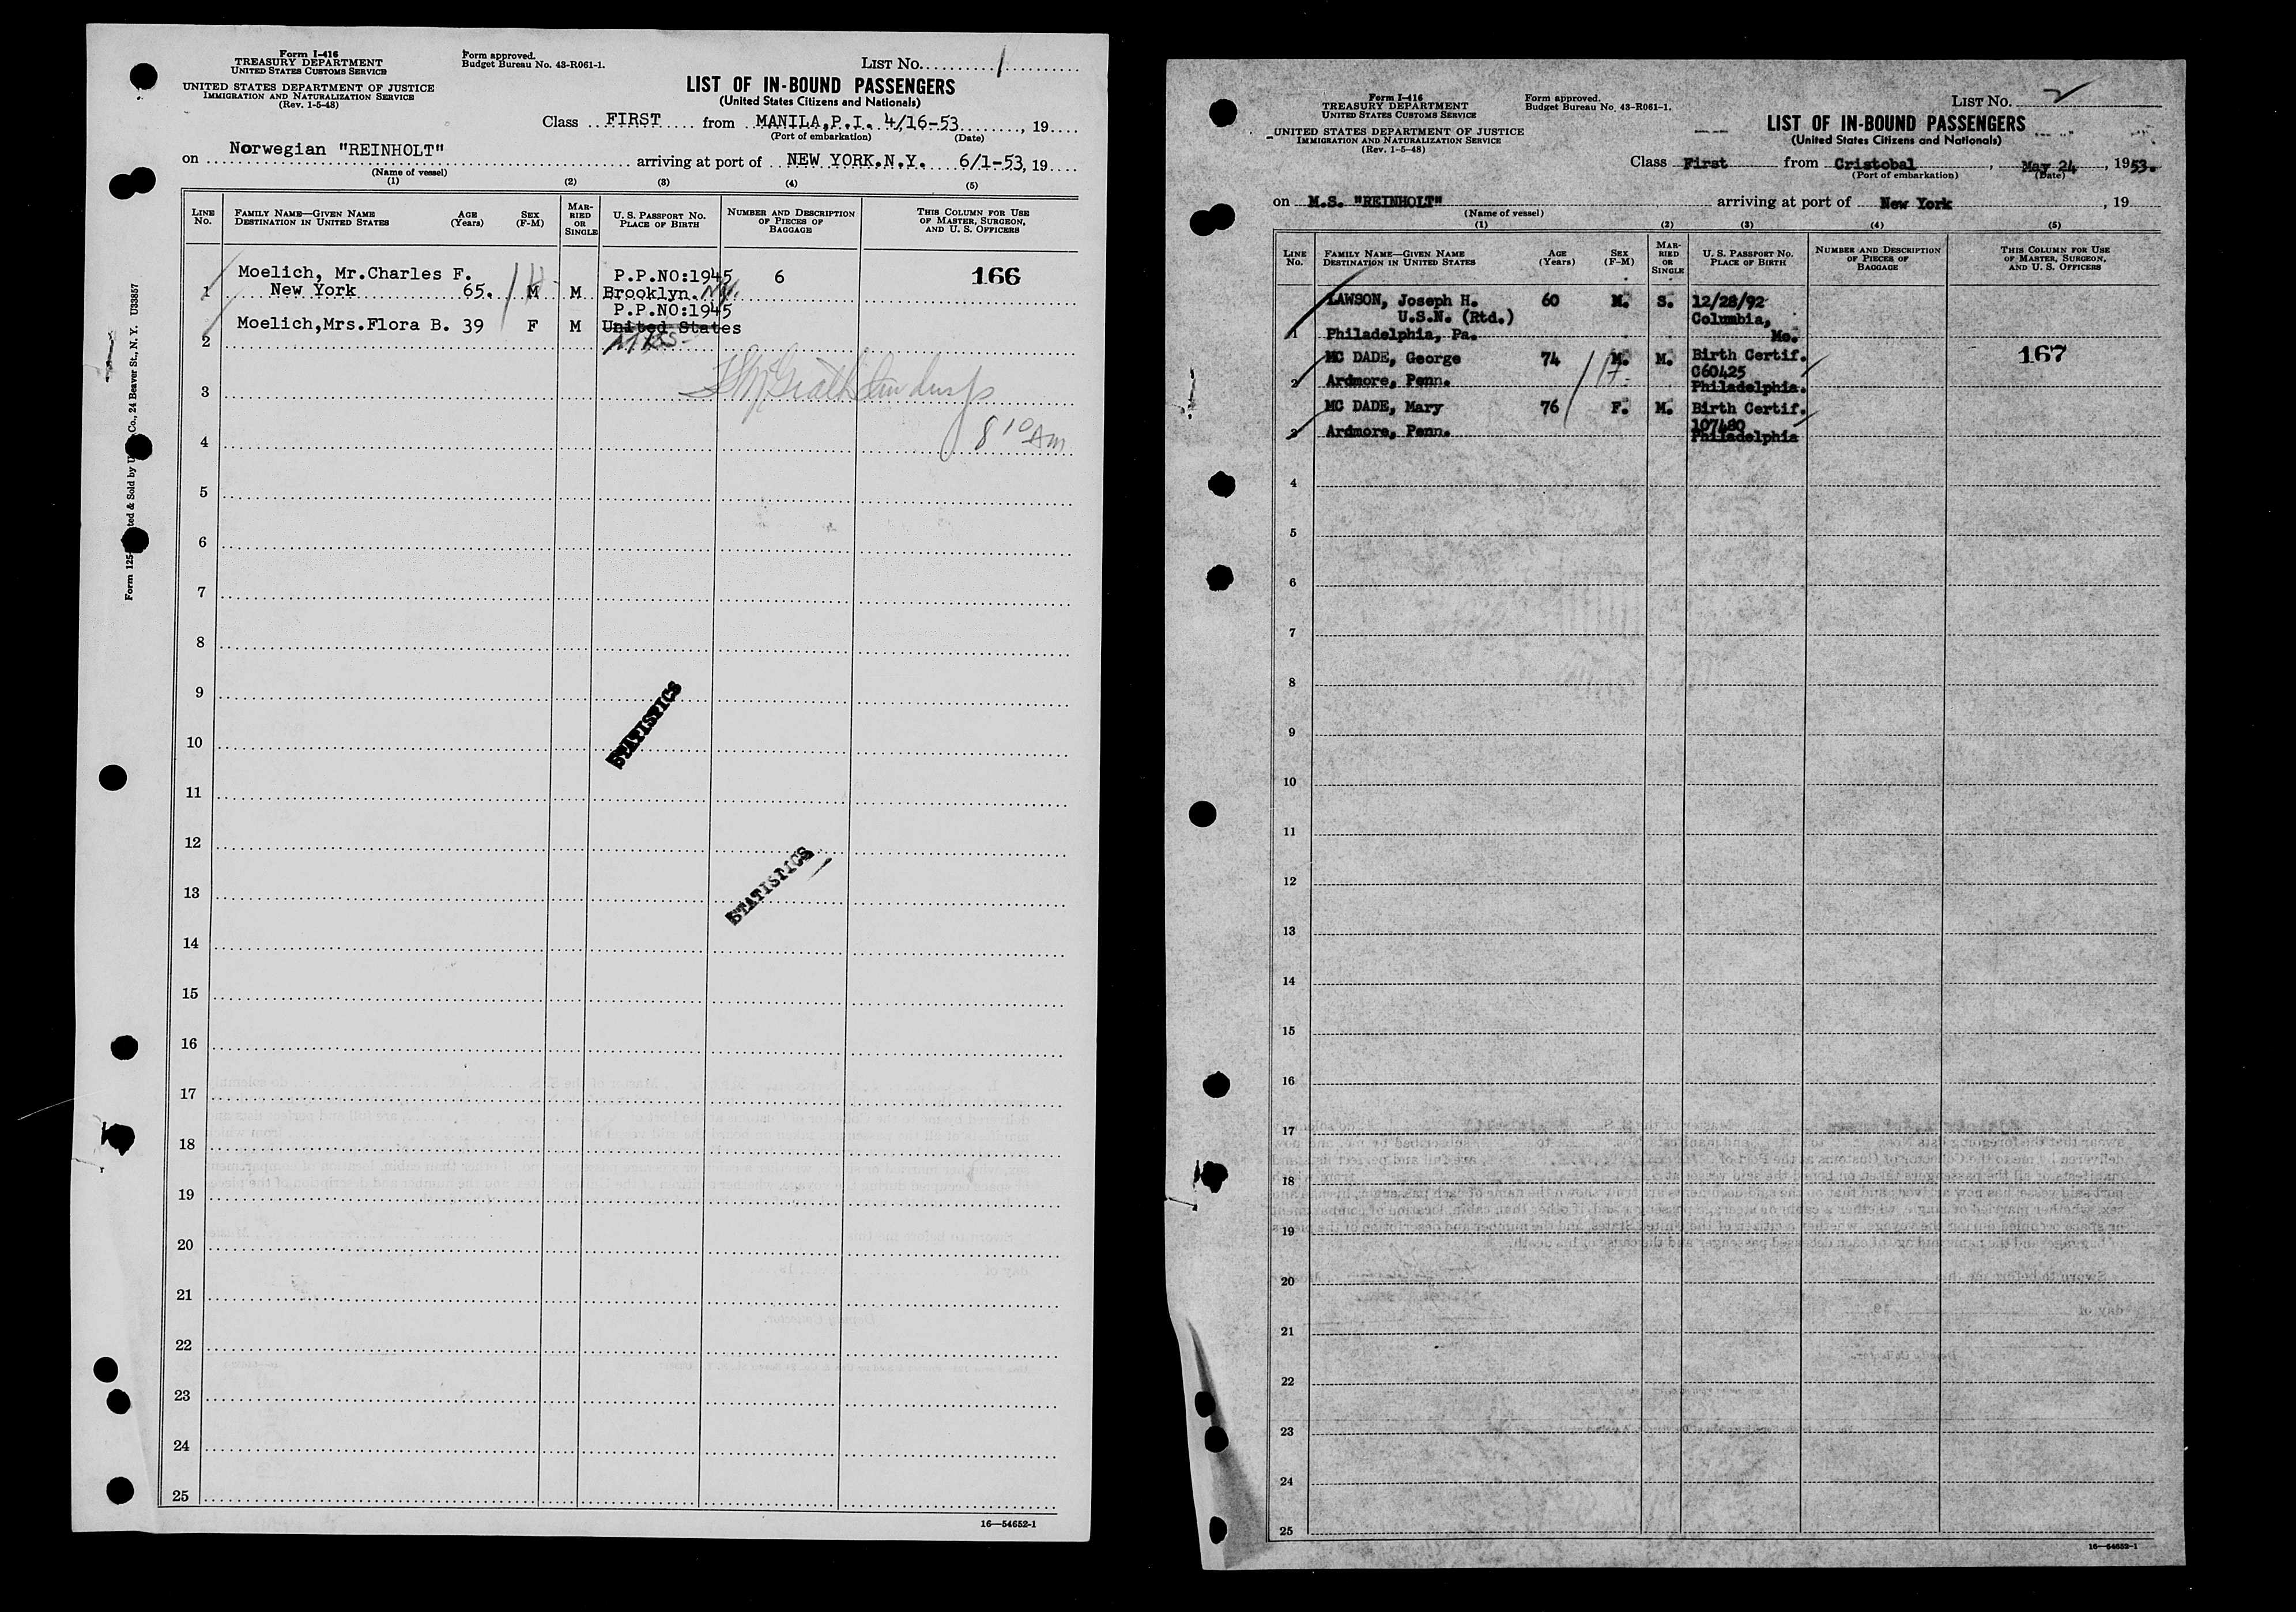 Form I-416
TREASURY DEPARTMENT
UNITED STATES CUSTOMS SERVICE
UNITED STATES DEPARTMENT OF JUSTICE
IMMIGRATION AND NATURALIZATION SERVICE
(Rev. 1-5-48)
Form approved.
Budget Bureau No. 43-R061-1.
LIST No. 1
LIST OF IN-BOUND PASSENGERS
(United States Citizens and Nationals)
Class FIRST from MANILA,P.I. 4/16-53, 19
(Port of embarkation) (Date)
on Norwegian "REINHOLT" arriving at port of NEW YORK.N.Y. 6/1-53, 19
(Name of vessel)
(1) (2) (3) (4) (5)
LINE No.
FAMILY NAME—GIVEN NAME
DESTINATION IN UNITED STATES
AGE (Years)
SEX (F-M)
MARRIED OR SINGLE
U. S. PASSPORT No.
PLACE OF BIRTH
NUMBER AND DESCRIPTION OF PIECES OF BAGGAGE
THIS COLUMN FOR USE OF MASTER, SURGEON, AND U. S. OFFICERS
Moelich, Mr.Charles F. P.P.NO:1945 6 166
1 New York 65. M M Brooklyn. N.Y.
P.P.NO:1945
Moelich,Mrs.Flora B. 39 F M United States
2
3
4 8 10 Am
5
6
7
8
9
10
11
12
13
14
15
16
17
18
19
20
21
22
23
24
25
STATISTICS
STATISTICS
16—54652-1
Co., 24 Beaver St., N. Y. U33857
Form 125
ted & Sold by
Form I-416
TREASURY DEPARTMENT
UNITED STATES CUSTOMS SERVICE
UNITED STATES DEPARTMENT OF JUSTICE
IMMIGRATION AND NATURALIZATION SERVICE
(Rev. 1-5-48)
Form approved.
Budget Bureau No. 43-R061-1.
LIST No. 2
LIST OF IN-BOUND PASSENGERS
(United States Citizens and Nationals)
Class First from Cristobal, May 24, 1953.
(Port of embarkation) (Date)
on M.S. "REINHOLT" arriving at port of New York, 19
(Name of vessel)
(1) (2) (3) (4) (5)
LINE No.
FAMILY NAME—GIVEN NAME
DESTINATION IN UNITED STATES
AGE (Years)
SEX (F-M)
MARRIED OR SINGLE
U. S. PASSPORT No.
PLACE OF BIRTH
NUMBER AND DESCRIPTION OF PIECES OF BAGGAGE
THIS COLUMN FOR USE OF MASTER, SURGEON, AND U. S. OFFICERS
LAWSON, Joseph H. 60 M. S. 12/28/92
U.S.N. (Rtd.) Columbia,
1 Philadelphia, Pa. Mo.
MC DADE, George 74 M. M. Birth Certif. 167
C60425
2 Ardmore, Penn. Philadelphia.
MC DADE, Mary 76 F. M. Birth Certif.
107480
3 Ardmore, Penn. Philadelphia
4
5
6
7
8
9
10
11
12
13
14
15
16
17
18
19
20
21
22
23
24
25
16—54652-1